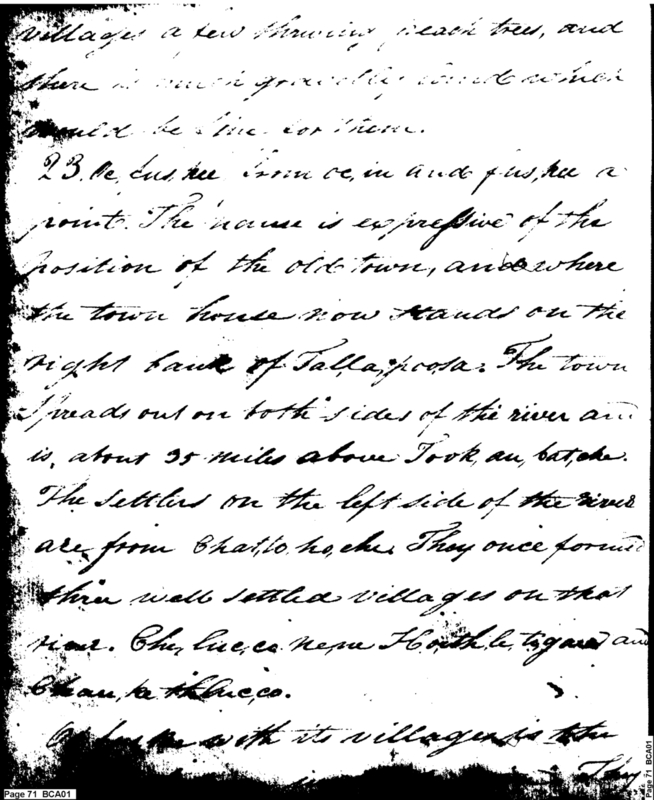 villages a few thriving peach trees, and
there is much gravelly land which
would be fine for them.
23. Oc,fus,kee from oc, in and fus,kee a
point. The name is expressive of the
position of the old town, and where
the town house now stands on the
right bank of Tal,la,poosa. The town
spreads out on both sides of the river and
is, about 35 miles above Took,au,bat,che.
The settlers on the left side of the river
are from Chat,to,ho,che. They once formed
three well settled villages on that
river. Che,luc,co ne,ne Ho,ith,le,ti,gau and
Chau,ke thluc,co.
Oc,fus,kee with its villages is the
Page 71 BCA01
Page 71 BCA01